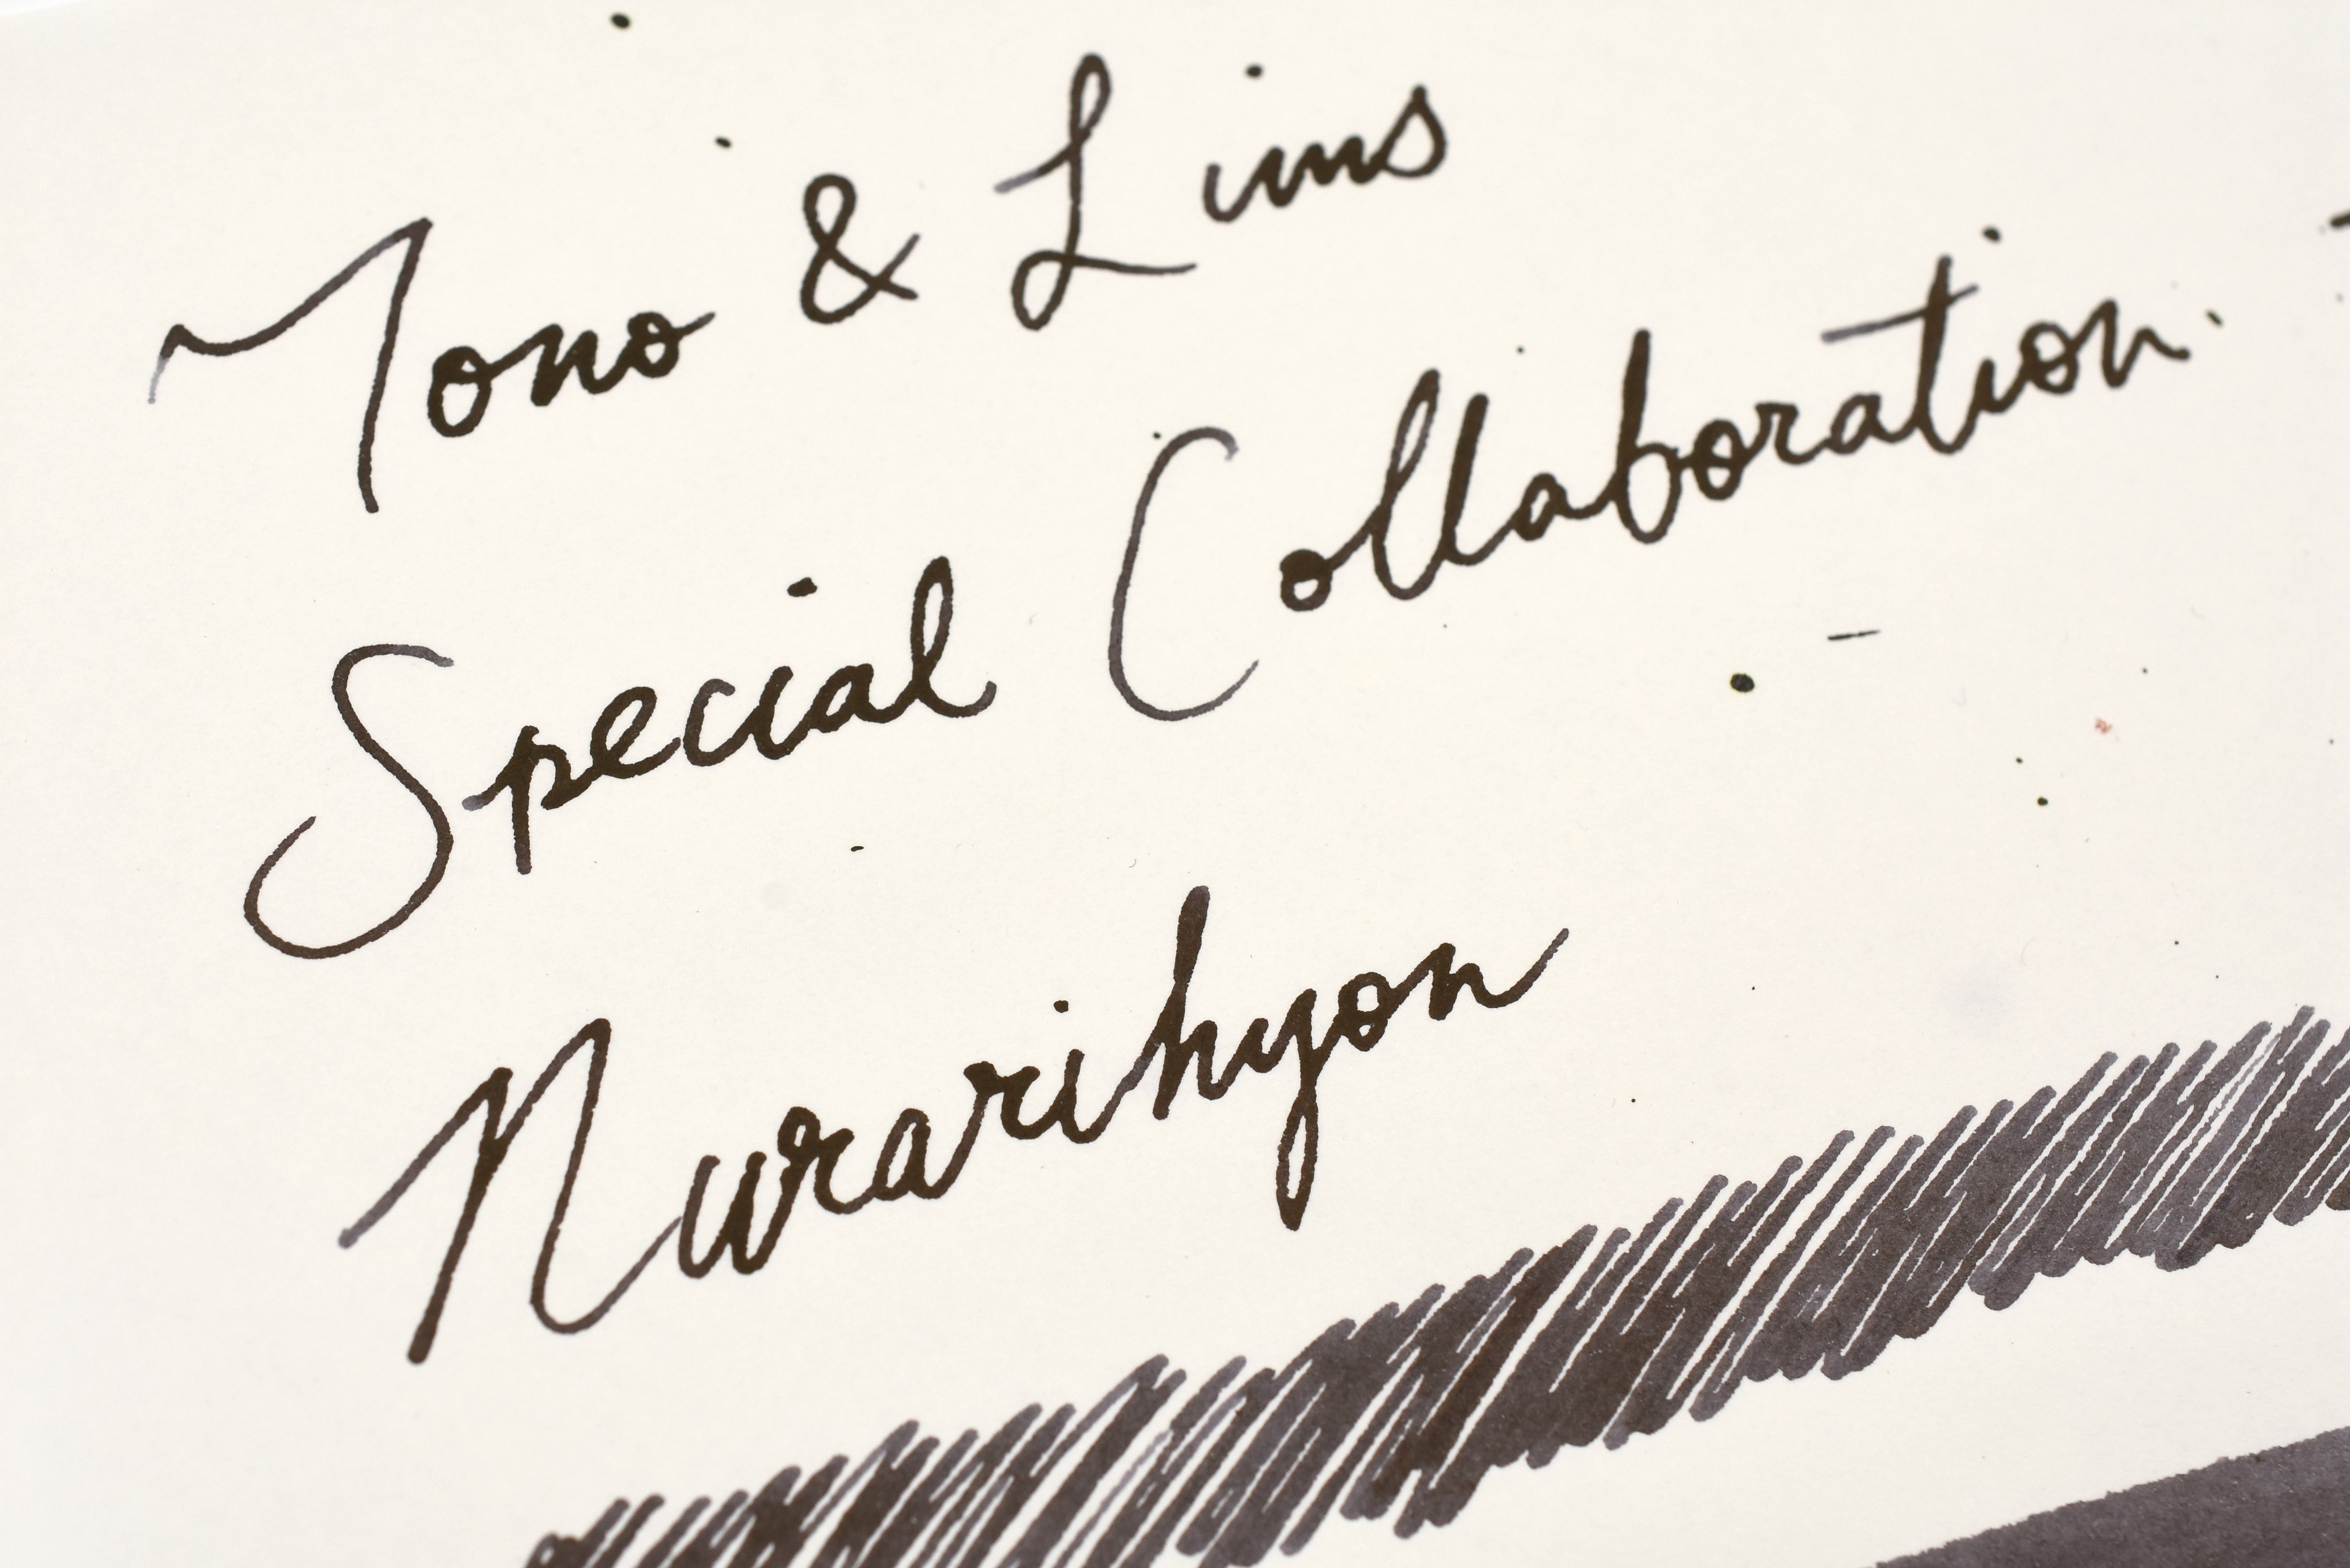 Tono & Lims
Special Collaboration
Nurarihyon